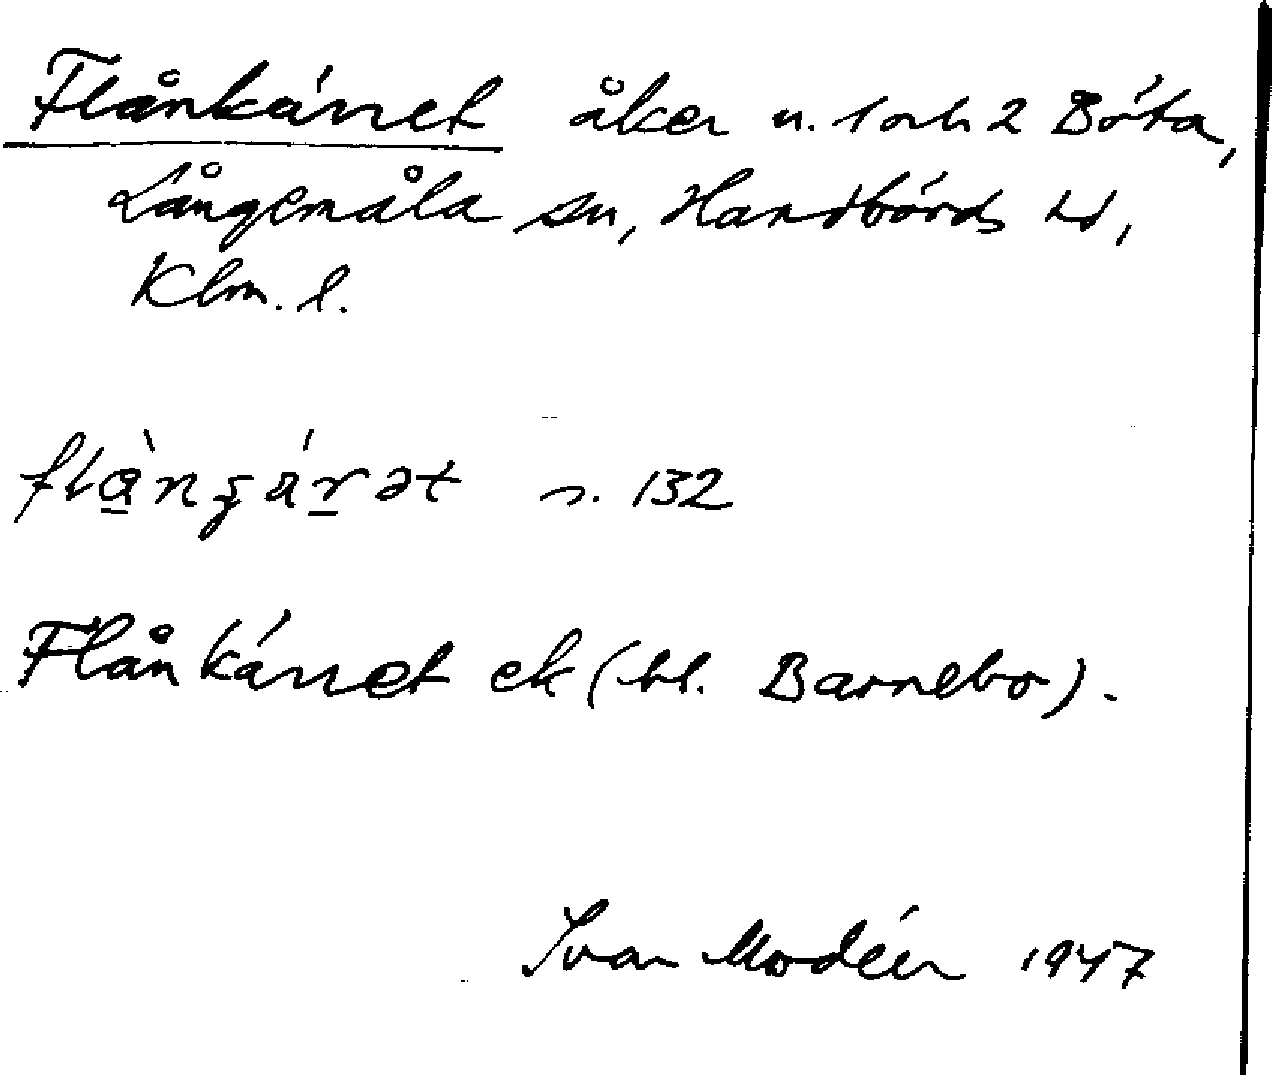 Flånkärret åker u. 1 och 2 Böta,
Långemåla sn, Handbörds hd,
Klm. l.
flång̀ärət s. 132
Flånkärret ek (bl. Barnebo).
Ivar Modéer 1947